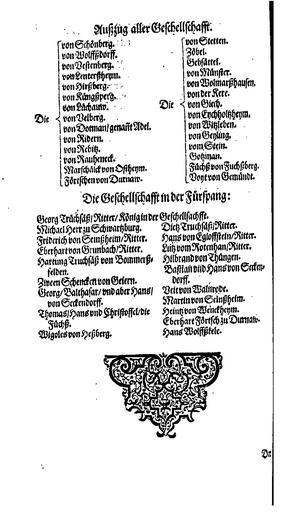 Außzug aller Geschellschafft.
Die
von Schönberg.
von Wolffsdorff.
von Vestenberg.
von Lentersheym.
von Hirßberg.
von Küngsperg.
von Lüchauw.
von Velberg.
von Dornan/genañt Adel.
von Ridern.
von Rebitz.
von Rauheneck.
Marschalck von Ostheym.
Förtschen von Durnaw.
Die
von Stetten.
Zöbel.
Gebsattel.
von Münster.
von Wolmarßhausen.
von der Kere.
von Giech.
von Eychholtzheym.
von Witzleben.
von Geyling.
vom Stein.
Gotzman.
Füchß von Fuchßberg.
Voyt von Gemündt.
Die Geschellschafft in der Fürspang:
Georg Trüchsäß/Ritter/König in der Geschellschafft.
Michael Herr zu Schwartzburg.
Friderich von Seinßheim/Ritter.
Eberhart von Grunbach/Ritter.
Hartung Truchsäß von Bommerß-
felden.
Zween Schencken von Geiern.
Georg/Balthasar/vnd aber Hans/
von Seckendorff.
Thomas/Hans vnd Christoffel/die
Füchß.
Wigoles von Heßberg.
Dietz Truchsäß/Ritter.
Hans von Egloffstein/Ritter.
Lutz vom Rotenhan/Ritter.
Hilbrand von Thüngen.
Bastian vnd Hans von Secken-
dorff.
Veit von Walnrode.
Martin von Seinßheim.
Heintz von Wenckheym.
Eberhart Förtsch zu Durnaw.
Hans Wolffßkele.